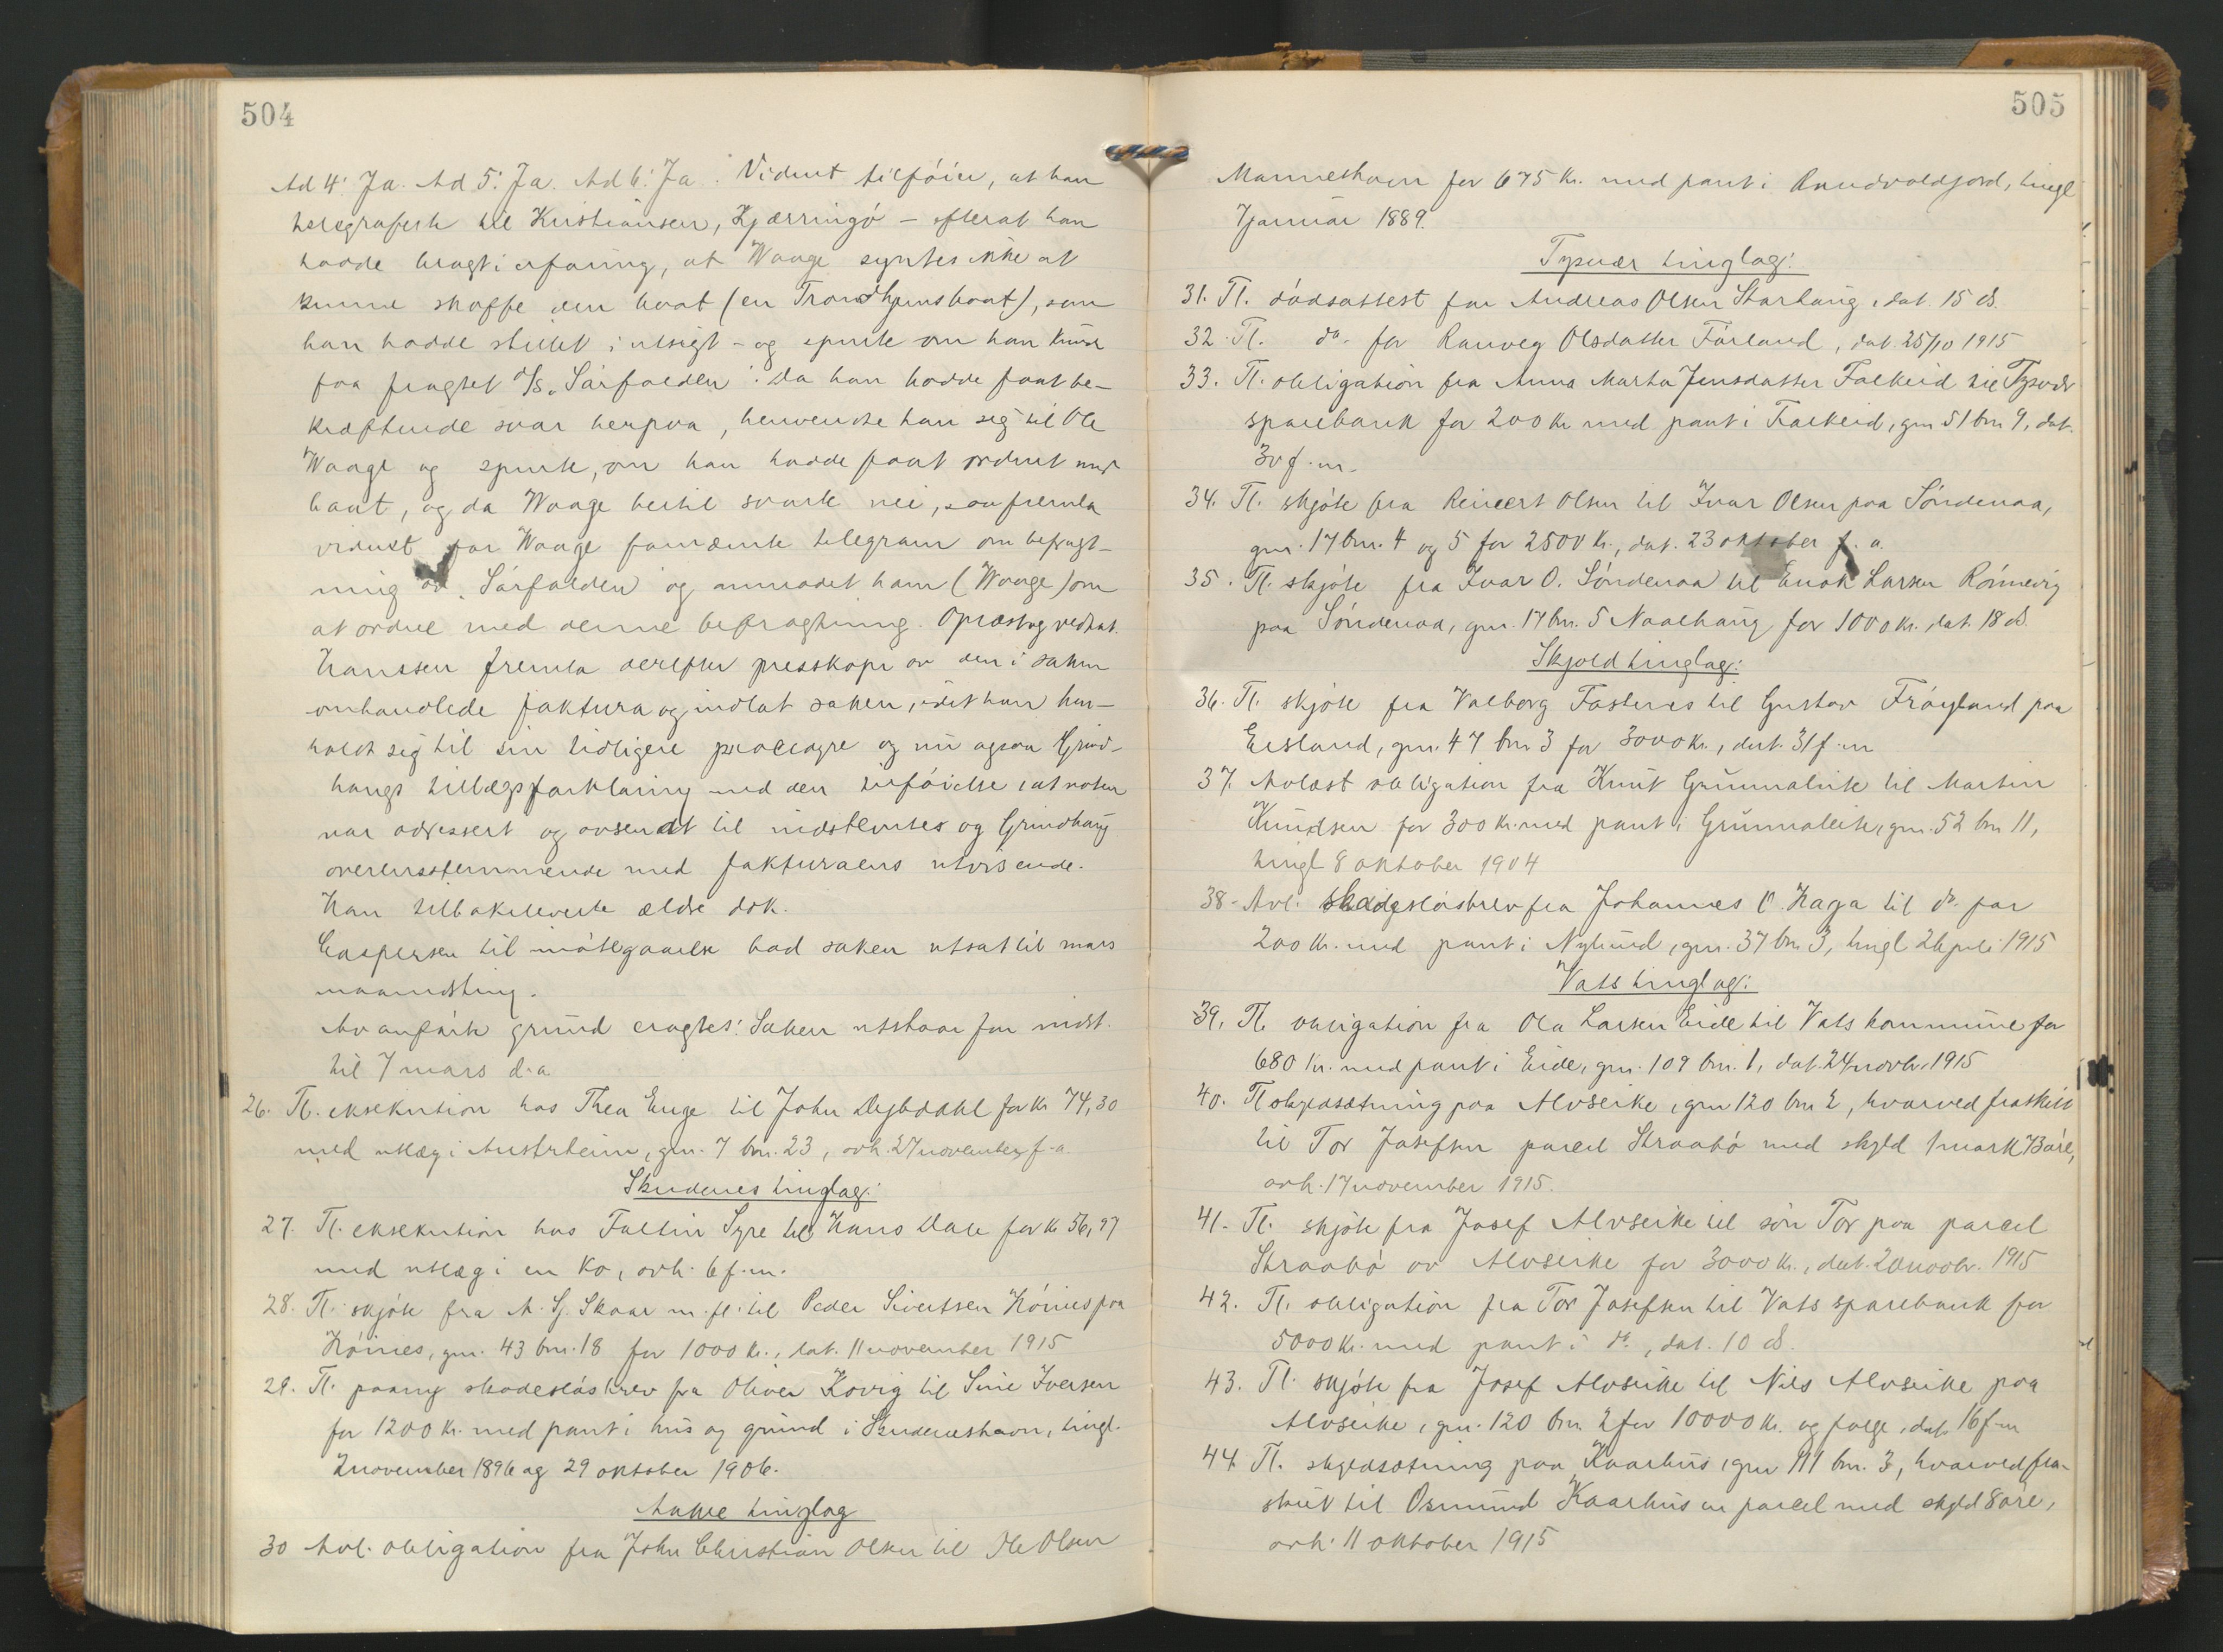 504
Ad 4: Ja. Ad 5: Ja. Ad 6: Ja. Vidnet tilføier, at han
telegraferte til Kristiansen, Kjærringø – efterat han
hadde bragt i erfaring, at Waage syntes ikke at
kunne skaffe den baat (en Trondhjemsbaat), som
han hadde stillet i utsigt – og spurte om han kunde
faa fragtet D/S. "Sørfolden". Da han hadde faat be-
kræftende svar herpaa, henvendte han seg til Ole
Waage og spurte, om han hadde faat ordnet med
baat, og da Waage hertil svarte nei, saa fremla
vidnet for Waage fornævnte telegram om befragt-
ning av "Sørfolden" og anmodet ham (Waage) om
at ordne med denne befragtning. Oplæst og vedtat.
Hanssen fremla derefter presskopi av den i saken
omhandlede faktura og indlot saken, idet han hen-
holdt sig til sin tidligere procedyre og nu ogsaa Grind-
haugs tillægsforklaring med den tilføielse, at noten
var adressert og avsendt til indstevntes og Grindhaug
overensstemmende med fakturaens utvisende.
Han tilbakeleverte ældre dok.
Caspersen til imøtegaaelse bad saken utsat til mars
maanedsting.
Av anførte grund eragtes: Saken utstaar for indst.
til 7 mars d.a
26. Tl. eksekution hos Thea Enge til John Dybdahl for kr 74,30
med utlæg i Austrheim, gnr. 7 bnr. 23, avh. 27 november f.a.
Skudenes tinglag:
27. Tl. eksekution hos Faltin Syre til Hans Dale for kr 56,97
med utlæg i en ko, avh. 6 f.m.
28. Tl. skjøte fra A. Sj. Skaar m. fl. til Peder Sivertsen Høines paa
Høines, gnr. 43 bnr. 18 for 1000 kr., dat. 11 november 1915
29. Tl. paany skadesløsbrev fra Oliver Kovig til Sine Iversen
for 1200 kr. med pant i hus og grund i Skudeneshavn, tingl.
2 november 1896 og 29 oktober 1906.
Aakre tinglag
30 Avl. obligation fra John Christian Olsen til Ole Olsen
505
Manneshavn for 675 kr. med pant i Sandvoldjord, tingl
7 januar 1889.
Tysvær tinglag:
31. Tl. dødsattest for Andreas Olsen Starhaug, dat. 15 ds.
32. Tl. do. for Ranveg Olsdatter Førland, dat. 25/10 1915
33. Tl. obligation fra Anna Marta Jensdatter Falkeid til Tysvær
sparebank for 200 kr med pant i Falkeid, gnr 51 bnr 9, dat.
30 f.m.
34. Tl. skjøte fra Reinert Olsen til Ivar Olsen paa Søndenaa,
gnr. 17 bnr. 4 og 5 for 2500 kr., dat. 23 oktober f.a.
35. Tl. skjøte fra Ivar O. Søndenaa til Enok Larsen Rønnevig
paa Søndenaa, gnr. 17 bnr. 5 Naalhaug for 1000 kr., dat. 18 ds.
Skjold tinglag:
36. Tl. skjøte fra Valborg Fosterves til Gustav Frøyland paa
Eisland, gnr. 47 bnr 3 for 3000 kr., dat. 31 f.m
37. Avlæst obligation fra Knut Grunnaleite til Martin
Knudsen for 300 kr. med pant i Grunnaleite, gnr. 52 bnr 11,
tingl 8 oktober 1904
38. Avl. skadesløsbrev fra Johannes O. Haga til do. for
200 kr. med pant i Nylund, gnr. 37 bnr 3, tingl 26 juli 1915
Vats tinglag:
39. Tl. obligation fra Ola Larsen Eide til Vats kommune for
680 kr. med pant i Eide, gnr. 109 bnr. 1, dat. 24 novbr. 1915
40. Tl skyldsætning paa Alvseike, gnr 120 bnr 2, hvorved fraskilt
til Tor Josefsen parcel Straabø med skyld 1 mark 73 øre,
avh. 17 november 1915.
41. Tl. skjøte fra Josef Alvseike til søn Tor paa parcel
Straabø av Alvseike for 3000 kr., dat. 20 novbr. 1915
42. Tl. obligation fra Tor Josefsen til Vats sparebank for
5000 kr. med pant i do., dat. 10 ds.
43. Tl. skjøte fra Josef Alvseike til Nils Alvseike paa
Alvseike, gnr. 120 bnr. 2 for 10000 kr. og folge, dat. 16 f.m
44 Tl. skyldsætning paa Kaarhus, gnr 111 bnr. 3, hvorved fra-
skilt til Osmund Kaarhus en parcel med skyld 8 øre,
avh. 11 oktober 1915